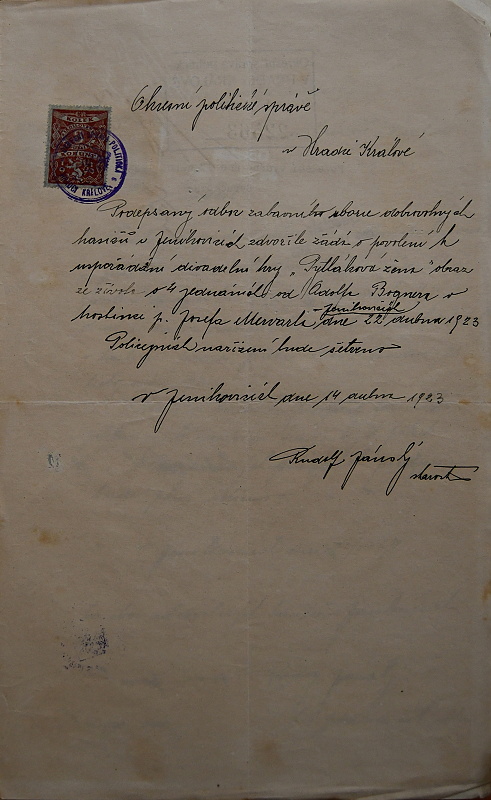 Okresní politické správě
v Hradci Králové
KOLEK
5
POLITICKÁ
Podepsaný odbor zábavního sboru dobrovolných
hasičů v Jeníkovicích zdvořile žádá o povolení k
uspořádání divadelní hry „Pytlákova žena" obraz
ze života o 4 jednáních od Adolfa Bognera v
hostinci p. Josefa Mervarta Jeníkovicích dne 22 dubna 1923
Policejních nařízení bude šetřeno
V Jeníkovicích dne 14 dubna 1923
Rudolf
starosta